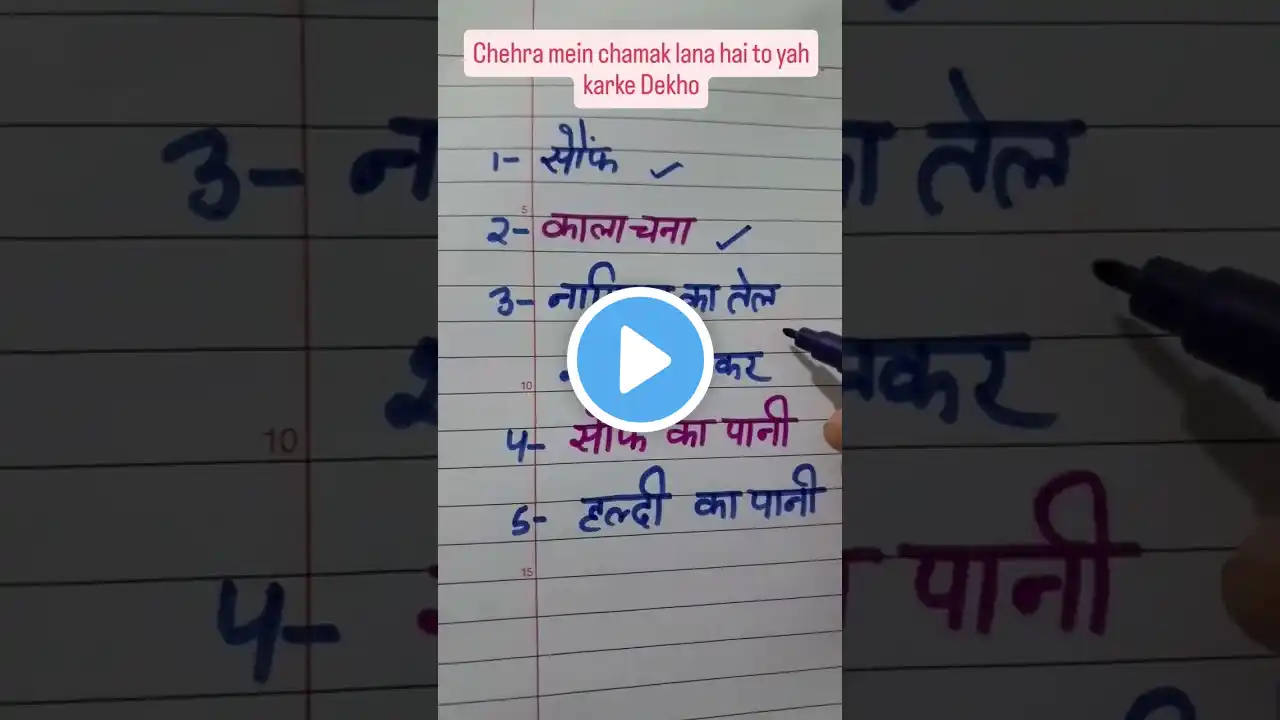 Chehra mein chamak lana hai to yah
karke Dekho
१- सौंफ ✓
२- काला चना ✓
3- का तेल
कर
५- सौंफ का पानी
5- हल्दी का पानी
5
10
15